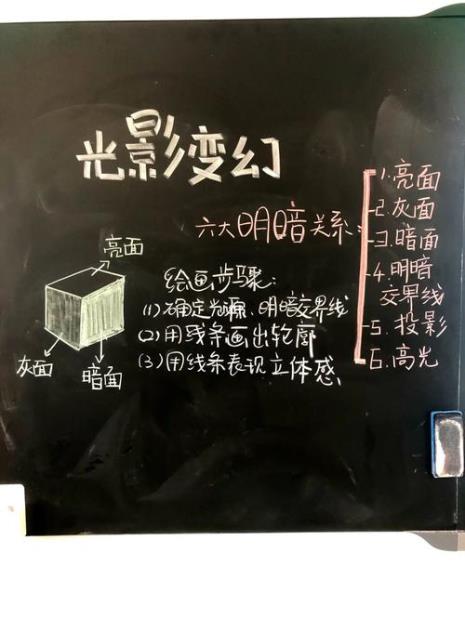 光影变幻
六大明暗关系:
1.亮面
2.灰面
3.暗面
4.明暗
交界线
5.投影
6.高光
亮面
灰面
暗面
绘画步骤:
(1)确定光源、明暗交界线
(2)用线条画出轮廓
(3)用线条表现立体感